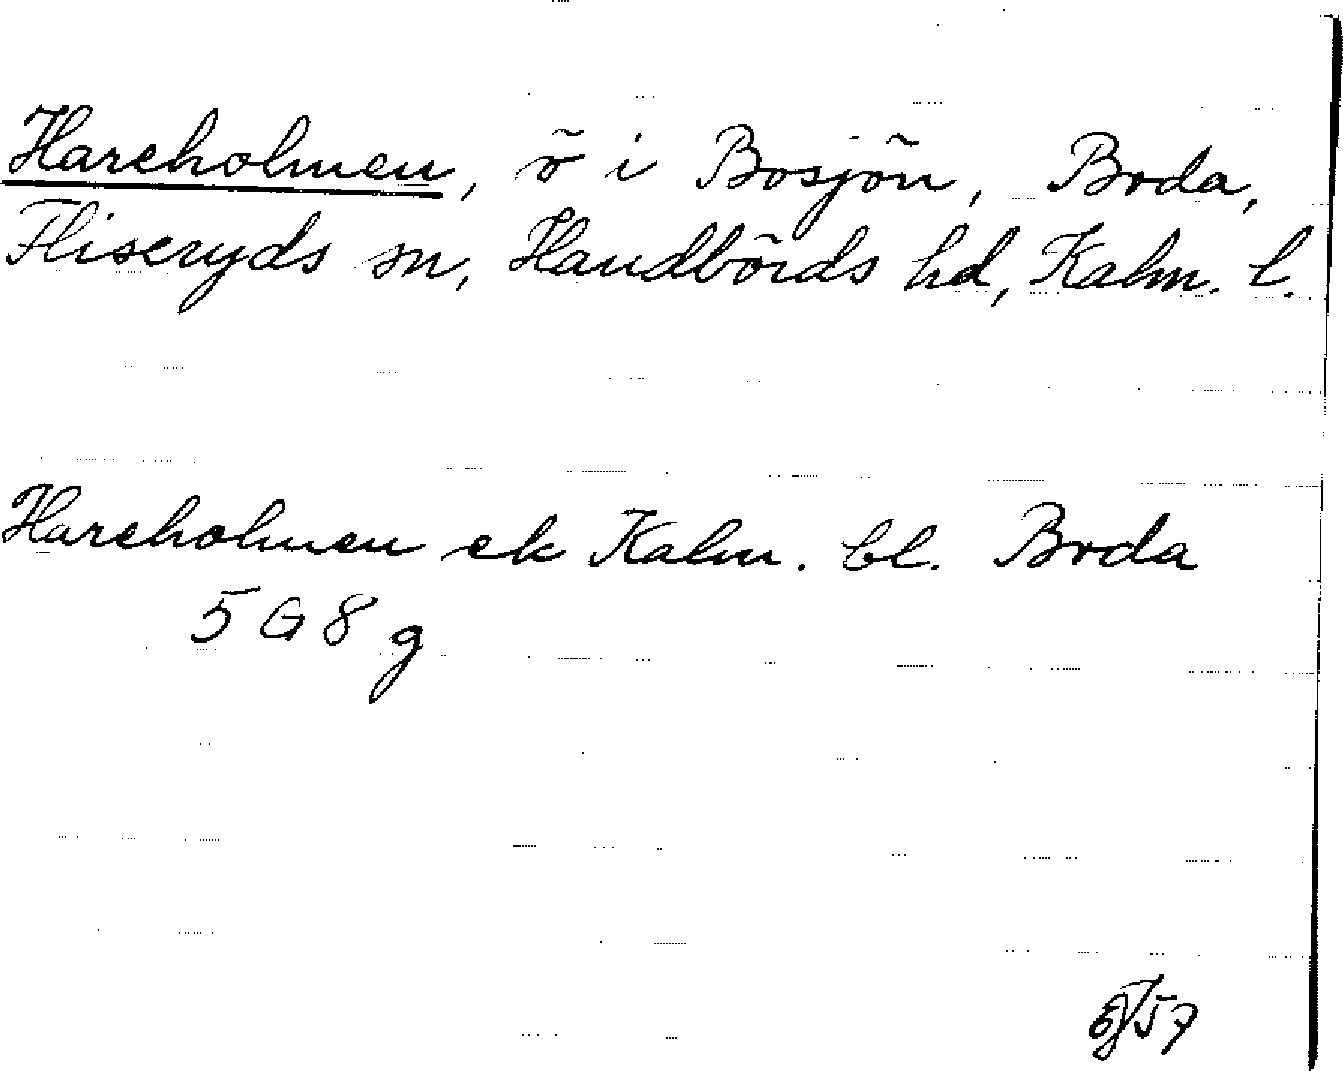 Hareholmen, ö i Bosjön, Boda,
Fliseryds sn, Handbörds hd, Kalm. l.
Hareholmen ek Kalm. bl. Boda
5 G 8 g